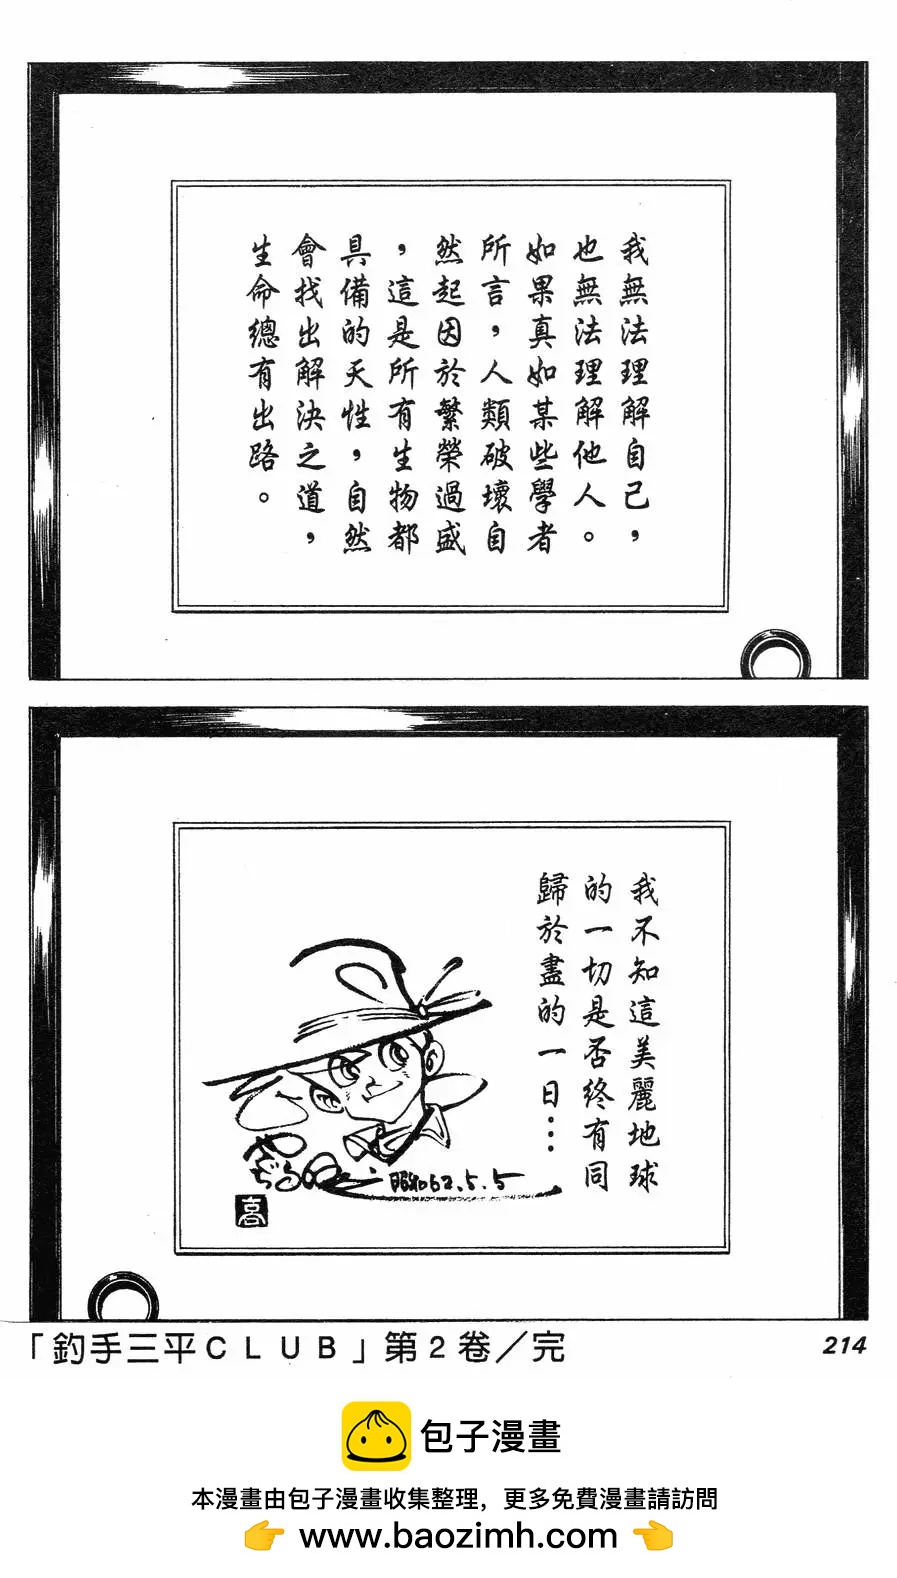 我無法理解自己，
也無法理解他人。
如果真如某些學者
所言，人類破壞自
然起因於繁榮過盛
，這是所有生物都
具備的天性，自然
會找出解決之道，
生命總有出路。
我不知這美麗地球
的一切是否終有同
歸於盡的一日…
昭和62.5.5
「釣手三平CLUB」第2卷／完
214
包子漫畫
本漫畫由包子漫畫收集整理，更多免費漫畫請訪問
👉 www.baozimh.com 👈